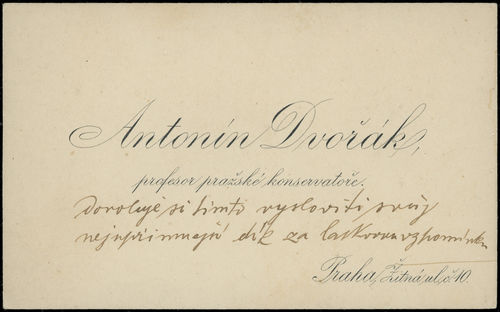 Antonín Dvořák,
profesor pražské konservatoře.
Dovoluje si tímto vysloviti svůj
nejupřímnější dík za laskavou vzpomínku
Praha, Žitná ul. č. 10.